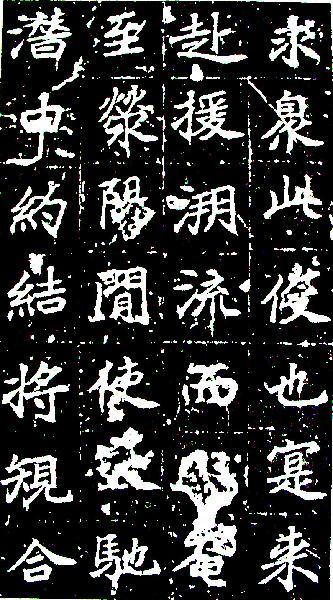 求此也寔来
赴援溯流而
至滎陽閒使馳
潛申約結將規合